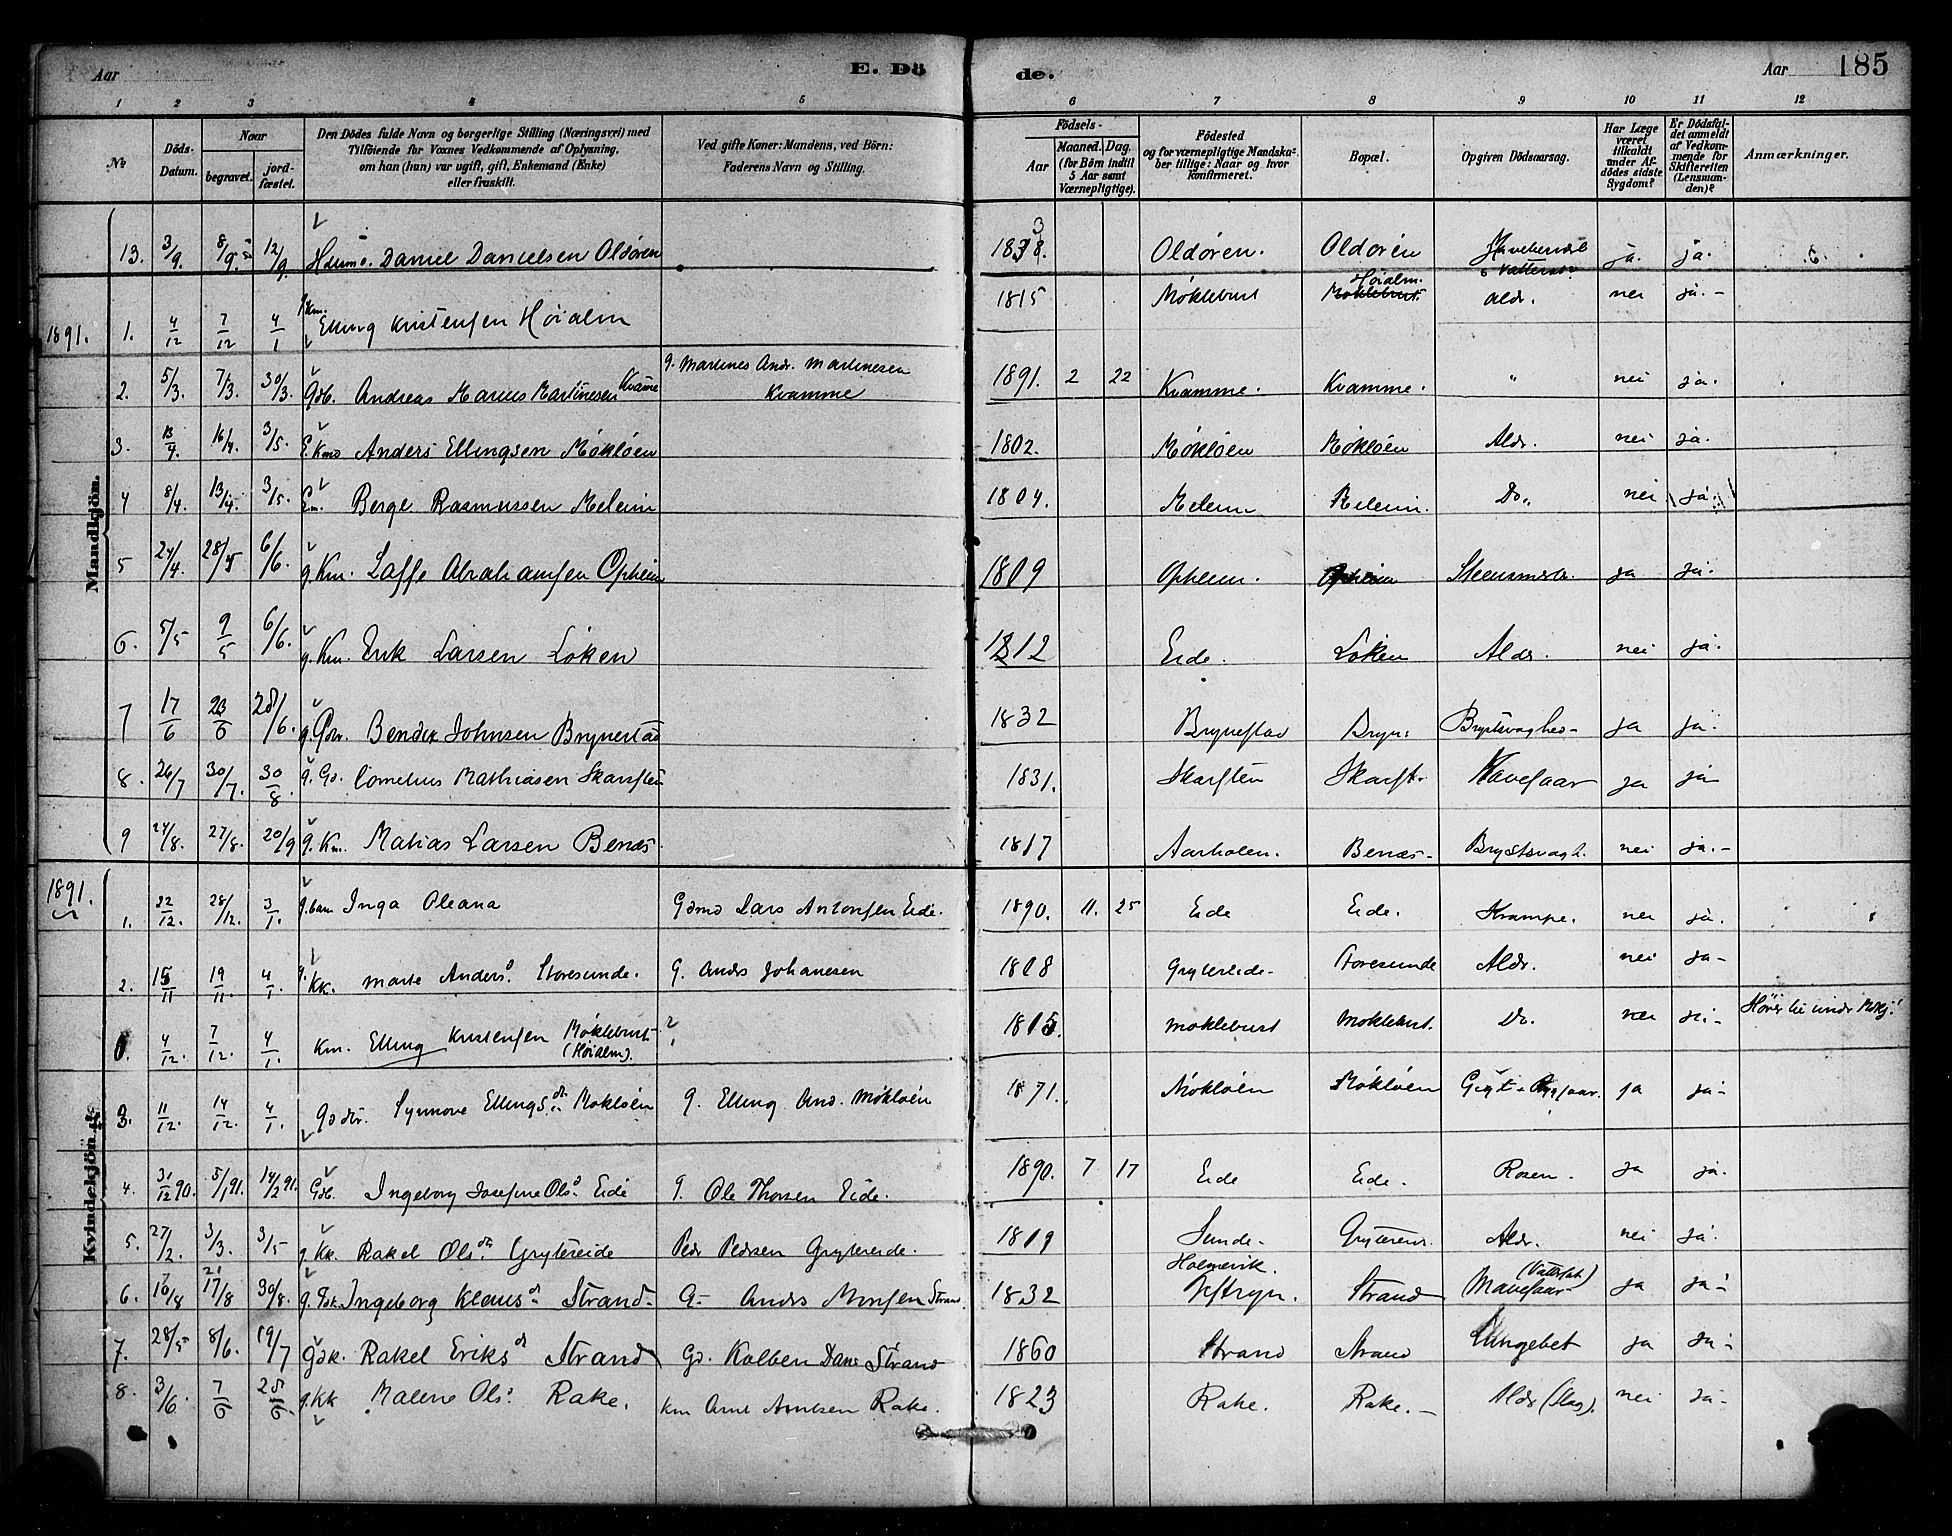 Aar E. Dö de. Aar 185
1 2 3 4 5 6 7 8 9 10 11 12
No
Döds-Datum.
Naar
begravet.
jord-fæstet.
Den Dödes fulde Navn og borgerlige Stilling (Næringsvei) med
Tilföiende for Voxnes Vedkommende af Oplysning,
om han (hun) var ugift, gift, Enkemand (Enke)
eller fraskilt.
Ved gifte Koner: Mandens, ved Börn:
Faderens Navn og Stilling.
Födsels-
Aar
Maaned. Dag.
(for Börn indtil
5 Aar samt
Værnepligtige).
Födested
og for værnepligtige Mandska-
ber tillige: Naar og hvor
konfirmeret.
Bopæl.
Opgiven Dödsaarsag.
Har Læge
været
tilkaldt
under Af-
dödes sidste
Sygdom?
Er Dödsfal-
det anmeldt
af Vedkom-
mende for
Skifteretten
(Lensman-
den)?
Anmærkninger.
Mandkjön.
13. 3/9. 8/9. 12/9 Daniel Danielsen Oldøren 1838. Oldøren. Oldøren ja. ja.
1891. 1. 4/12 7/12 4/1 Km. Elling Kristensen Høialm 1815 Møklebust Høialm. Møklebust. Aldr. nei ja.-
2. 5/3. 7/3. 30/3. Gdb. Andreas Marius Martinesen Kvame G. Martines Andr. Martinesen Kvamme 1891. 2 22 Kvamme. Kvamme. " nei ja.
3. 13/4. 16/4. 3/5. E. Kmd Anders Ellingsen Møkløen 1802. Møkløen Møkløen Aldr. nei ja.
4 8/4. 13/4. 3/5. Em. Berge Rasmussen Meleim 1804. Meleim Meleim. Do. nei ja.
5 24/4. 28/4 6/6. g. Km. Laffe Abrahamsen Opheim 1809 Opheim. Opheim ja ja.
6. 5/5 9/5 6/6. g. Km. Erik Larsen Løken 1812 Eide. Løken Aldr. nei ja.
7 17/6 23/6 28/6. g. Bendik Johnsen Brynestad 1832 Brynestad Bryn: Brystsvaghed- ja ja.
8. 26/7 30/7. 30/8. g. Gd. Cornelius Mathiasen Skarsten 1831. Skarsten Skarst. Mavesaar ja ja
9 24/8. 27/8. 20/9 g. Km. Matias Larsen Benæs. 1817 Aarholen. Benæs- Brystsvagh. nei ja.-
Kvindekjön.
1891. 1. 22/12. 28/12. 3/1. g.barn Inga Oleana Gdmd Lars Antonsen Eide. 1890. 11. 25 Eide Eide. Krampe. nei ja.
2. 15/11 19/11. 4/1. g. Kk. Marte Andersd Storesunde. G. Andrs Johanesen 1808 Grytereide- Storesunde Aldr. nei ja-
4/12. 7/12. 4/1. Km. Elling Kristensen Møklebust (Høialm). ? 1815. Moklebust Moklebust. Do. nei ja- Hører til under Mkj!
3. 11/12. 14/12. 4/1. Gddtr. Synnøve Ellingsdtr. Møkløen G. Elling And. Møkløen 1871. Møkløen Møkløen ja ja-
4. 31/12 90. 5/1 91. 14/2 91. Gdb. Ingeborg Josefine Olsd Eide G. Ole Thorsen Eide. 1890. 7 17 Eide Eide. Rosen. ja ja.
5. 27/2. 3/3. 3/5 g. Kk. Rakel Olsdtr. Grytereide Pedr Pedersen Grytereide. 1819 Sunde- Aldr. nei ja.
6. 10/8 21 17/8 30/8. g. Ingeborg Klausd. Strand- G- Andrs Monsen Strand. 1832 Holmevik. Vestryn. Strand Mavesaar (Vattersot) ja ja-
7. 28/5 8/6. 19/7 Gdk. Rakel Eriksd Strand Gd. Kolben Danl Strand 1860 Strand Strand ja ja-
8. 3/6. 7/6 28/6 g. Kk Malene Olsd. Rake. Km Arnt Arntsen Rake. 1823 Rake. Rake.- Aldr (Slag). nei ja-